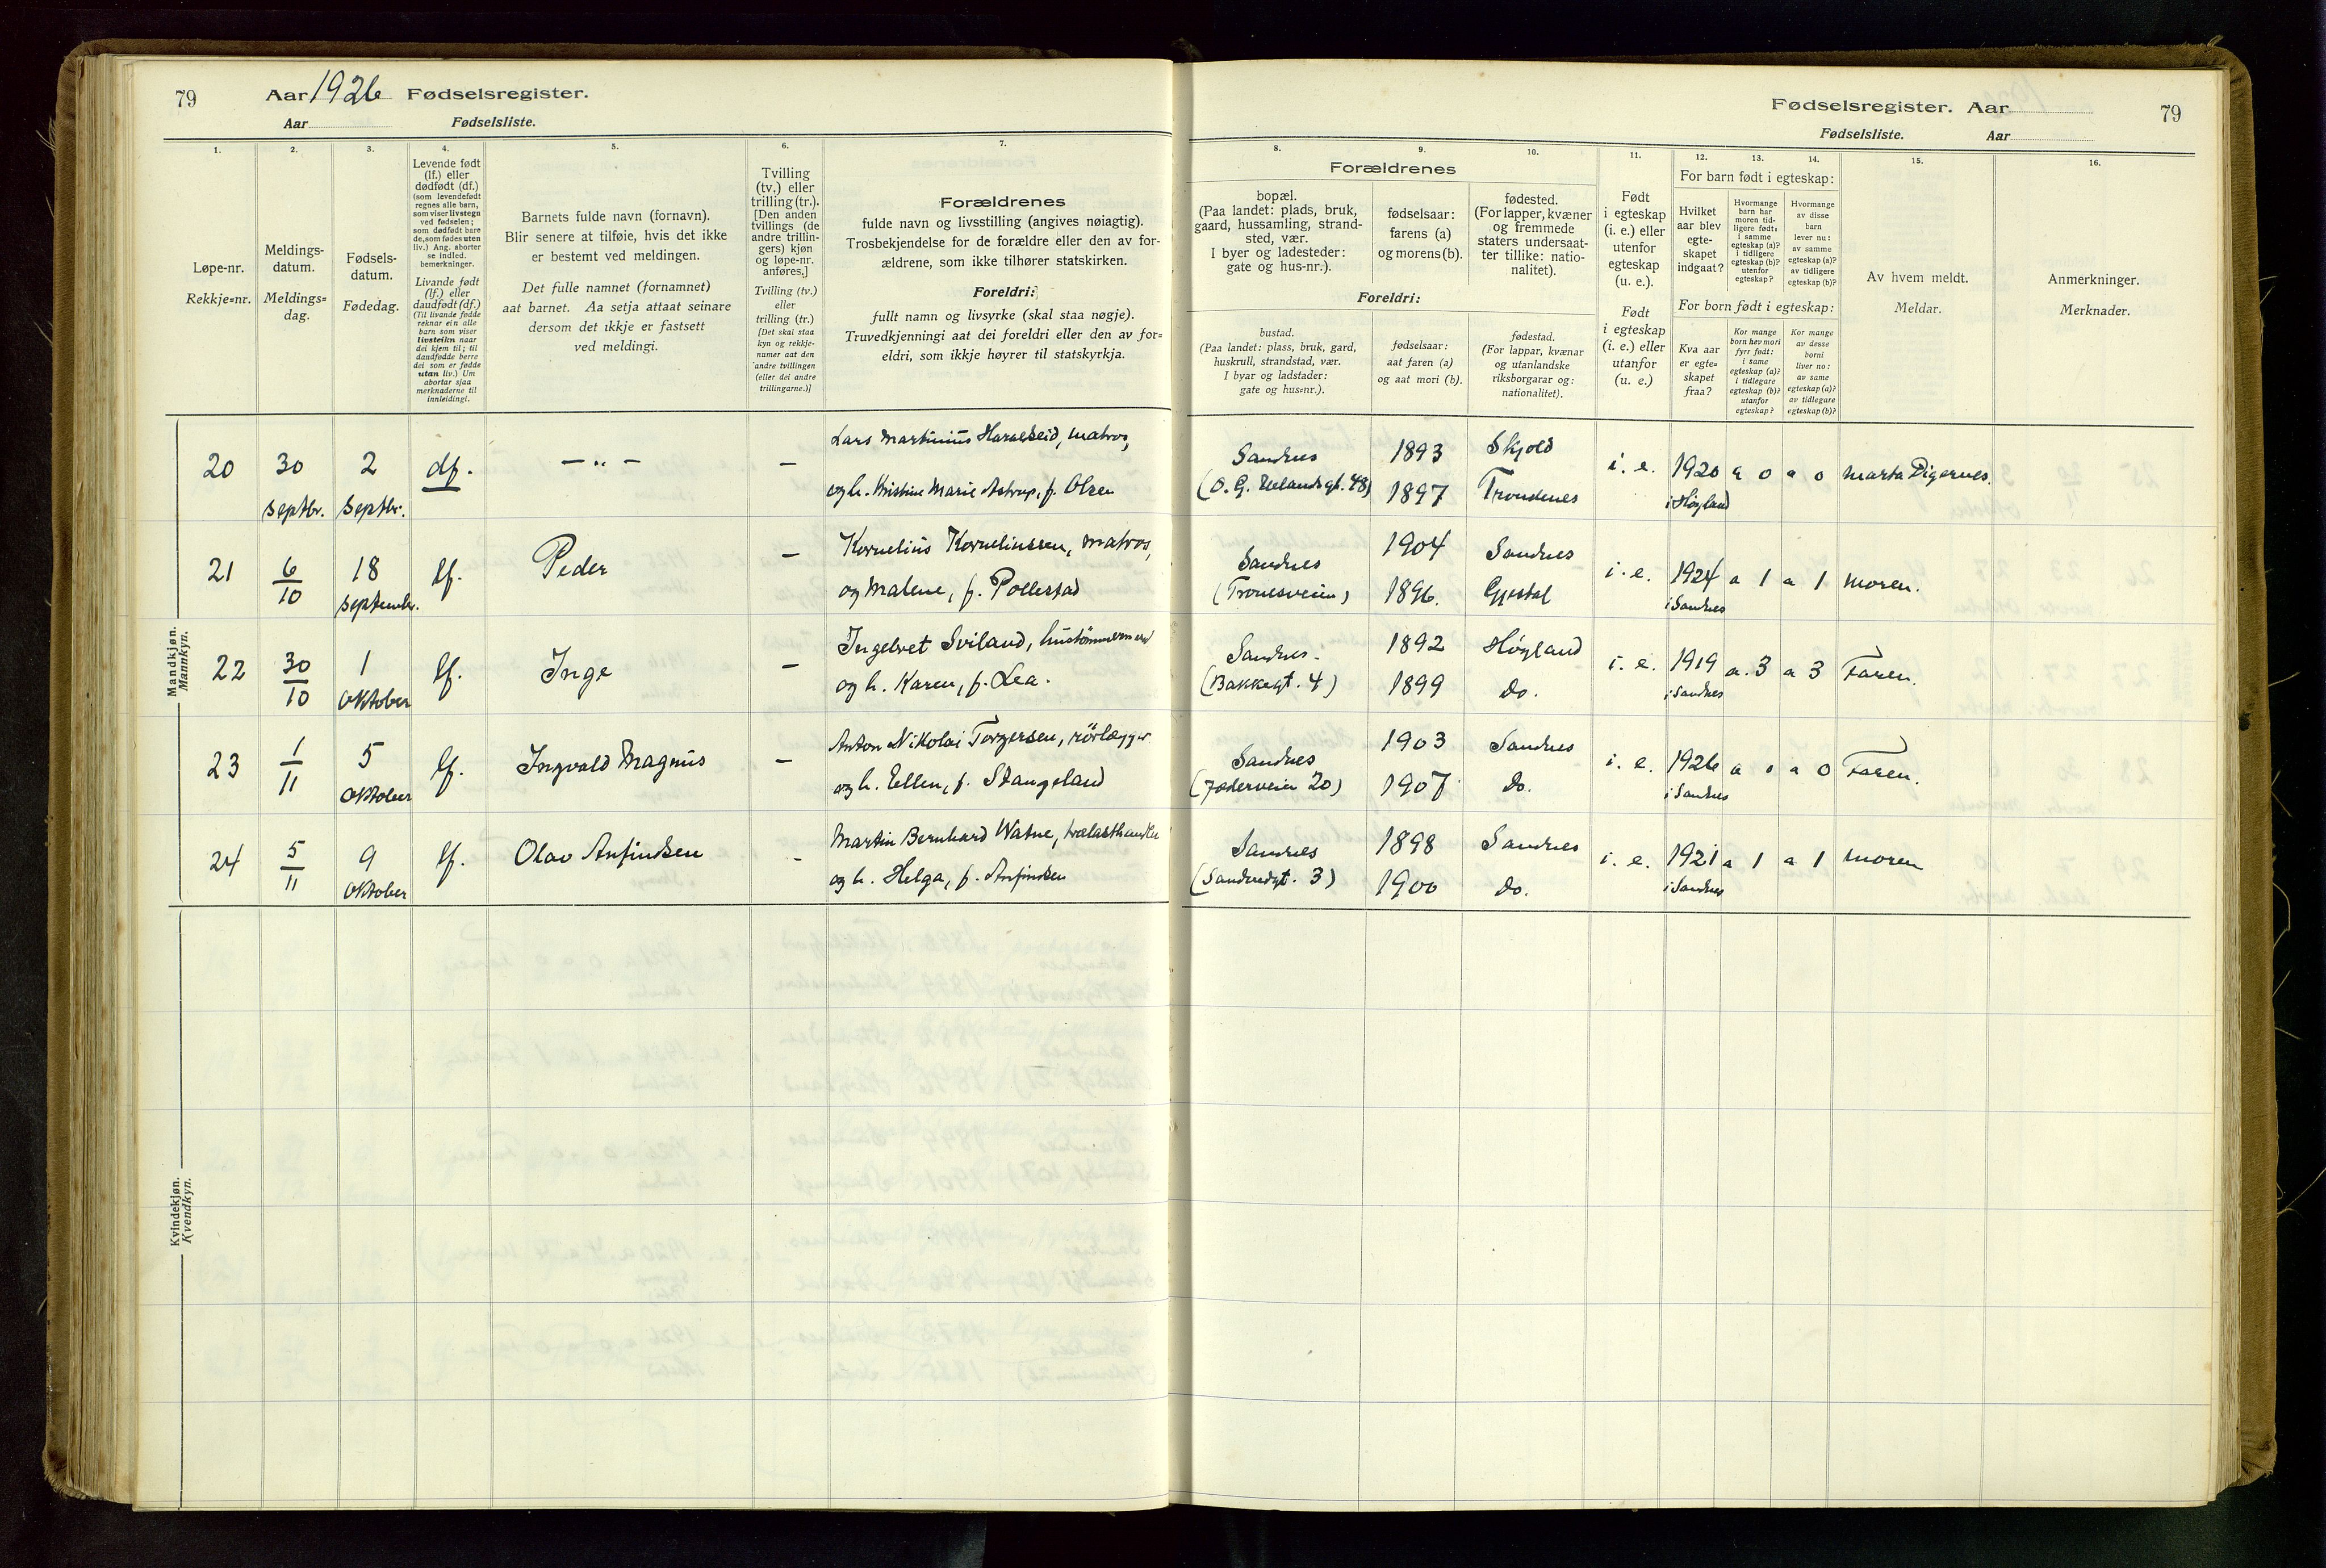 79
Aar 1926 Fødselsregister.
Aar Fødselsliste.
Fødselsregister. Aar
79
Fødselsliste. Aar
1.
Løpe-nr.
Rekkje-nr.
2.
Meldings-
datum.
Meldings-
dag.
3.
Fødsels-
datum.
Fødedag.
4.
Levende født
(lf.) eller
dødfødt (df.)
(som levendefødt
regnes alle barn,
som viser livstegn
ved fødselen;
som dødfødt bare
de, som fødes uten
liv.) Ang. aborter
se indled.
bemerkninger.
Livande født
(lf.) eller
daudfødt (df.)
(Til livande fødde
reknar ein alle
barn som viser
livsteikn naar
dei kjem til; til
daudfødde berre
dei som er fødde
utan liv.) Um
abortar sjaa
merknaderne til
innleidingi.
5.
Barnets fulde navn (fornavn).
Blir senere at tilføie, hvis det ikke
er bestemt ved meldingen.
Det fulle namnet (fornamnet)
aat barnet. Aa setja attaat seinare
dersom det ikkje er fastsett
ved meldingi.
6.
Tvilling
(tv.) eller
trilling (tr.).
[Den anden
tvillings (de
andre trillin-
gers) kjøn
og løpe-nr.
anføres.]
Tvilling (tv.)
eller
trilling (tr.)
[Det skal staa
kyn og rekkje-
numer aat den
andre tvillingen
(eller dei andre
trillingarne.)]
7.
Forældrenes
fulde navn og livsstilling (angives nøiagtig).
Trosbekjendelse for de forældre eller den av for-
ældrene, som ikke tilhører statskirken.
Foreldri:
fullt namn og livsyrke (skal staa nøgje).
Truvedkjenningi aat dei foreldri eller den av for-
eldri, som ikkje høyrer til statskyrkja.
Forældrenes
8.
bopæl.
(Paa landet: plads, bruk,
gaard, hussamling, strand-
sted, vær.
I byer og ladesteder:
gate og hus-nr.).
9.
fødselsaar:
farens (a)
og morens (b).
10.
fødested.
(For lapper, kvæner
og fremmede
staters undersaat-
ter tillike: natio-
nalitet).
Foreldri:
bustad.
(Paa landet: plass, bruk, gard,
huskrull, strandstad, vær.
I byar og ladstader:
gate og hus-nr.).
fødselsaar:
aat faren (a)
og aat mori (b).
fødestad.
(For lappar, kvænar
og utanlandske
riksborgarar og:
nationalitet).
11.
Født
i egteskap
(i. e.) eller
utenfor
egteskap
(u. e.).
Født
i egteskap
(i. e.) eller
utanfor
(u. e.)
12. 13. 14.
For barn født i egteskap:
Hvilket
aar blev
egte-
skapet
indgaat?
Hvormange
barn har
moren tid-
ligere født:
i samme
egteskap (a)?
i tidligere
egteskap (b)?
utenfor
egteskap?
Hvormange
av disse
barn
lever nu:
av samme
egteskap (a)?
av tidligere
egteskap (b)?
For born født i egteskap:
Kva aar
er egte-
skapet
fraa?
Kor mange
born hev mori
fyrr født:
i same
egteskap (a)?
i tidlegare
egteskap (b)?
utanfor
egteskap?
Kor mange
av desse
borni
liver no:
av same
egteskap (a)?
av tidlegare
egteskap (b)?
15.
Av hvem meldt.
Meldar.
16.
Anmerkninger.
Merknader.
Mandkjøn.
Mannkyn.
20 30 septbr. 2 septbr. df. — „ — —
Lars Martinius Haraldseid, matros,
og h. Kristine Marie Astrup, f. Olsen
Sandnes 1893 Skjold
(O. G. Uelandsgt. 48) 1897 Trondenes
i. e. 1920 a 0 a 0 Marta Digernes.
i Høyland
21 6/10 18 september. lf. Peder —
Kornelius Korneliussen, matros,
og Malene, f. Pollestad
Sandnes 1904 Sandnes
(Tronesveien) 1896. Gjestal
i. e. 1924 a 1 a 1 moren.
i Sandnes
22 30/10 1 oktober lf. Inge —
Ingebret Sviland, hustømmermand
og h. Karen, f. Lea.
Sandnes. 1892 Høyland
(Bakkegt. 4) 1899 do.
i. e. 1919 a. 3 a 3 Faren.
i Sandnes
23 1/11 5 oktober lf. Ingvald Magnus —
Anton Nikolai Torgersen, rörlægger
og h. Ellen, f. Stangeland
Sandnes 1903 Sandnes
(Jæderveien 20) 1907 do.
i. e. 1926 a 0 a 0 Faren.
i Sandnes
24 5/11 9 oktober lf. Olav Anfindsen -
Martin Bernhard Watne, trælasthandler
og h. Helga, f. Anfindsen
Sandnes 1898 Sandnes
(Sandvedgt. 3) 1900 do.
i. e. 1921 a 1 a 1 moren
i Sandnes
Kvindekjøn.
Kvendkyn.